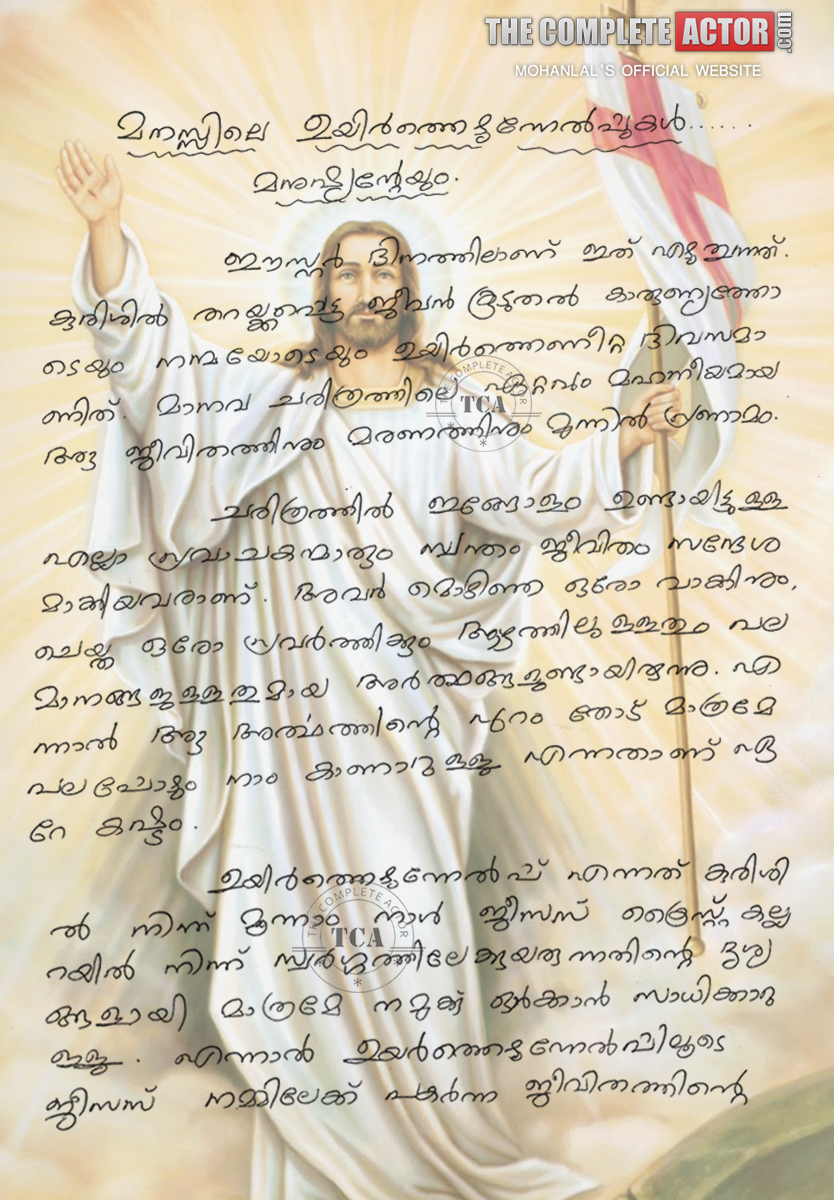 THE COMPLETE ACTOR.com
MOHANLAL'S OFFICIAL WEBSITE
മനസ്സിലെ ഉയിർത്തെഴുന്നേൽപ്പുകൾ......
മനുഷ്യന്റേയും.
ഈസ്റ്റർ ദിനത്തിലാണ് ഇത് എഴുതുന്നത്.
കുരിശിൽ തറയ്ക്കപ്പെട്ട ജീവൻ കൂടുതൽ കാരുണ്യത്തോ
ടെയും നന്മയോടെയും ഉയിർത്തെണീറ്റ ദിവസമാ
ണിത്. മാനവ ചരിത്രത്തിലെ ഏറ്റവും മഹനീയമായ
ആ ജീവിതത്തിനും മരണത്തിനും മുന്നിൽ പ്രണാമം.
ചരിത്രത്തിൽ ഇങ്ങോളം ഉണ്ടായിട്ടുള്ള
എല്ലാ പ്രവാചകന്മാരും സ്വന്തം ജീവിതം സന്ദേശ
മാക്കിയവരാണ്. അവൻ മൊഴിഞ്ഞ ഒരോ വാക്കിനും,
ചെയ്ത ഒരോ പ്രവർത്തിക്കും ആഴത്തിലുള്ളതും പല
മാനങ്ങളുള്ളതുമായ അർത്ഥങ്ങളുണ്ടായിരുന്നു. എ
ന്നാൽ ആ അർത്ഥത്തിന്റെ പുറം തോട് മാത്രമേ
പലപ്പോഴും നാം കാണാറുള്ളൂ എന്നതാണ് ഏ
റേ കഷ്ടം.
ഉയിർത്തെഴുന്നേൽപ് എന്നത് കുരിശി
ൽ നിന്ന് മൂന്നാം നാൾ ജീസസ് ക്രൈസ്റ്റ് കല്ല
റയിൽ നിന്ന് സ്വർഗ്ഗത്തിലേക്കുയരുന്നതിന്റെ ദൃശ്യ
ങ്ങളായി മാത്രമേ നമുക്ക് ഓർക്കാൻ സാധിക്കാറു
ള്ളൂ. എന്നാൽ ഉയർത്തെഴുന്നേൽപ്പിലൂടെ
ജീസസ് നമ്മിലേക്ക് പകർന്ന ജീവിതത്തിന്റെ
THE COMPLETE ACTOR
TCA
THE COMPLETE ACTOR
TCA